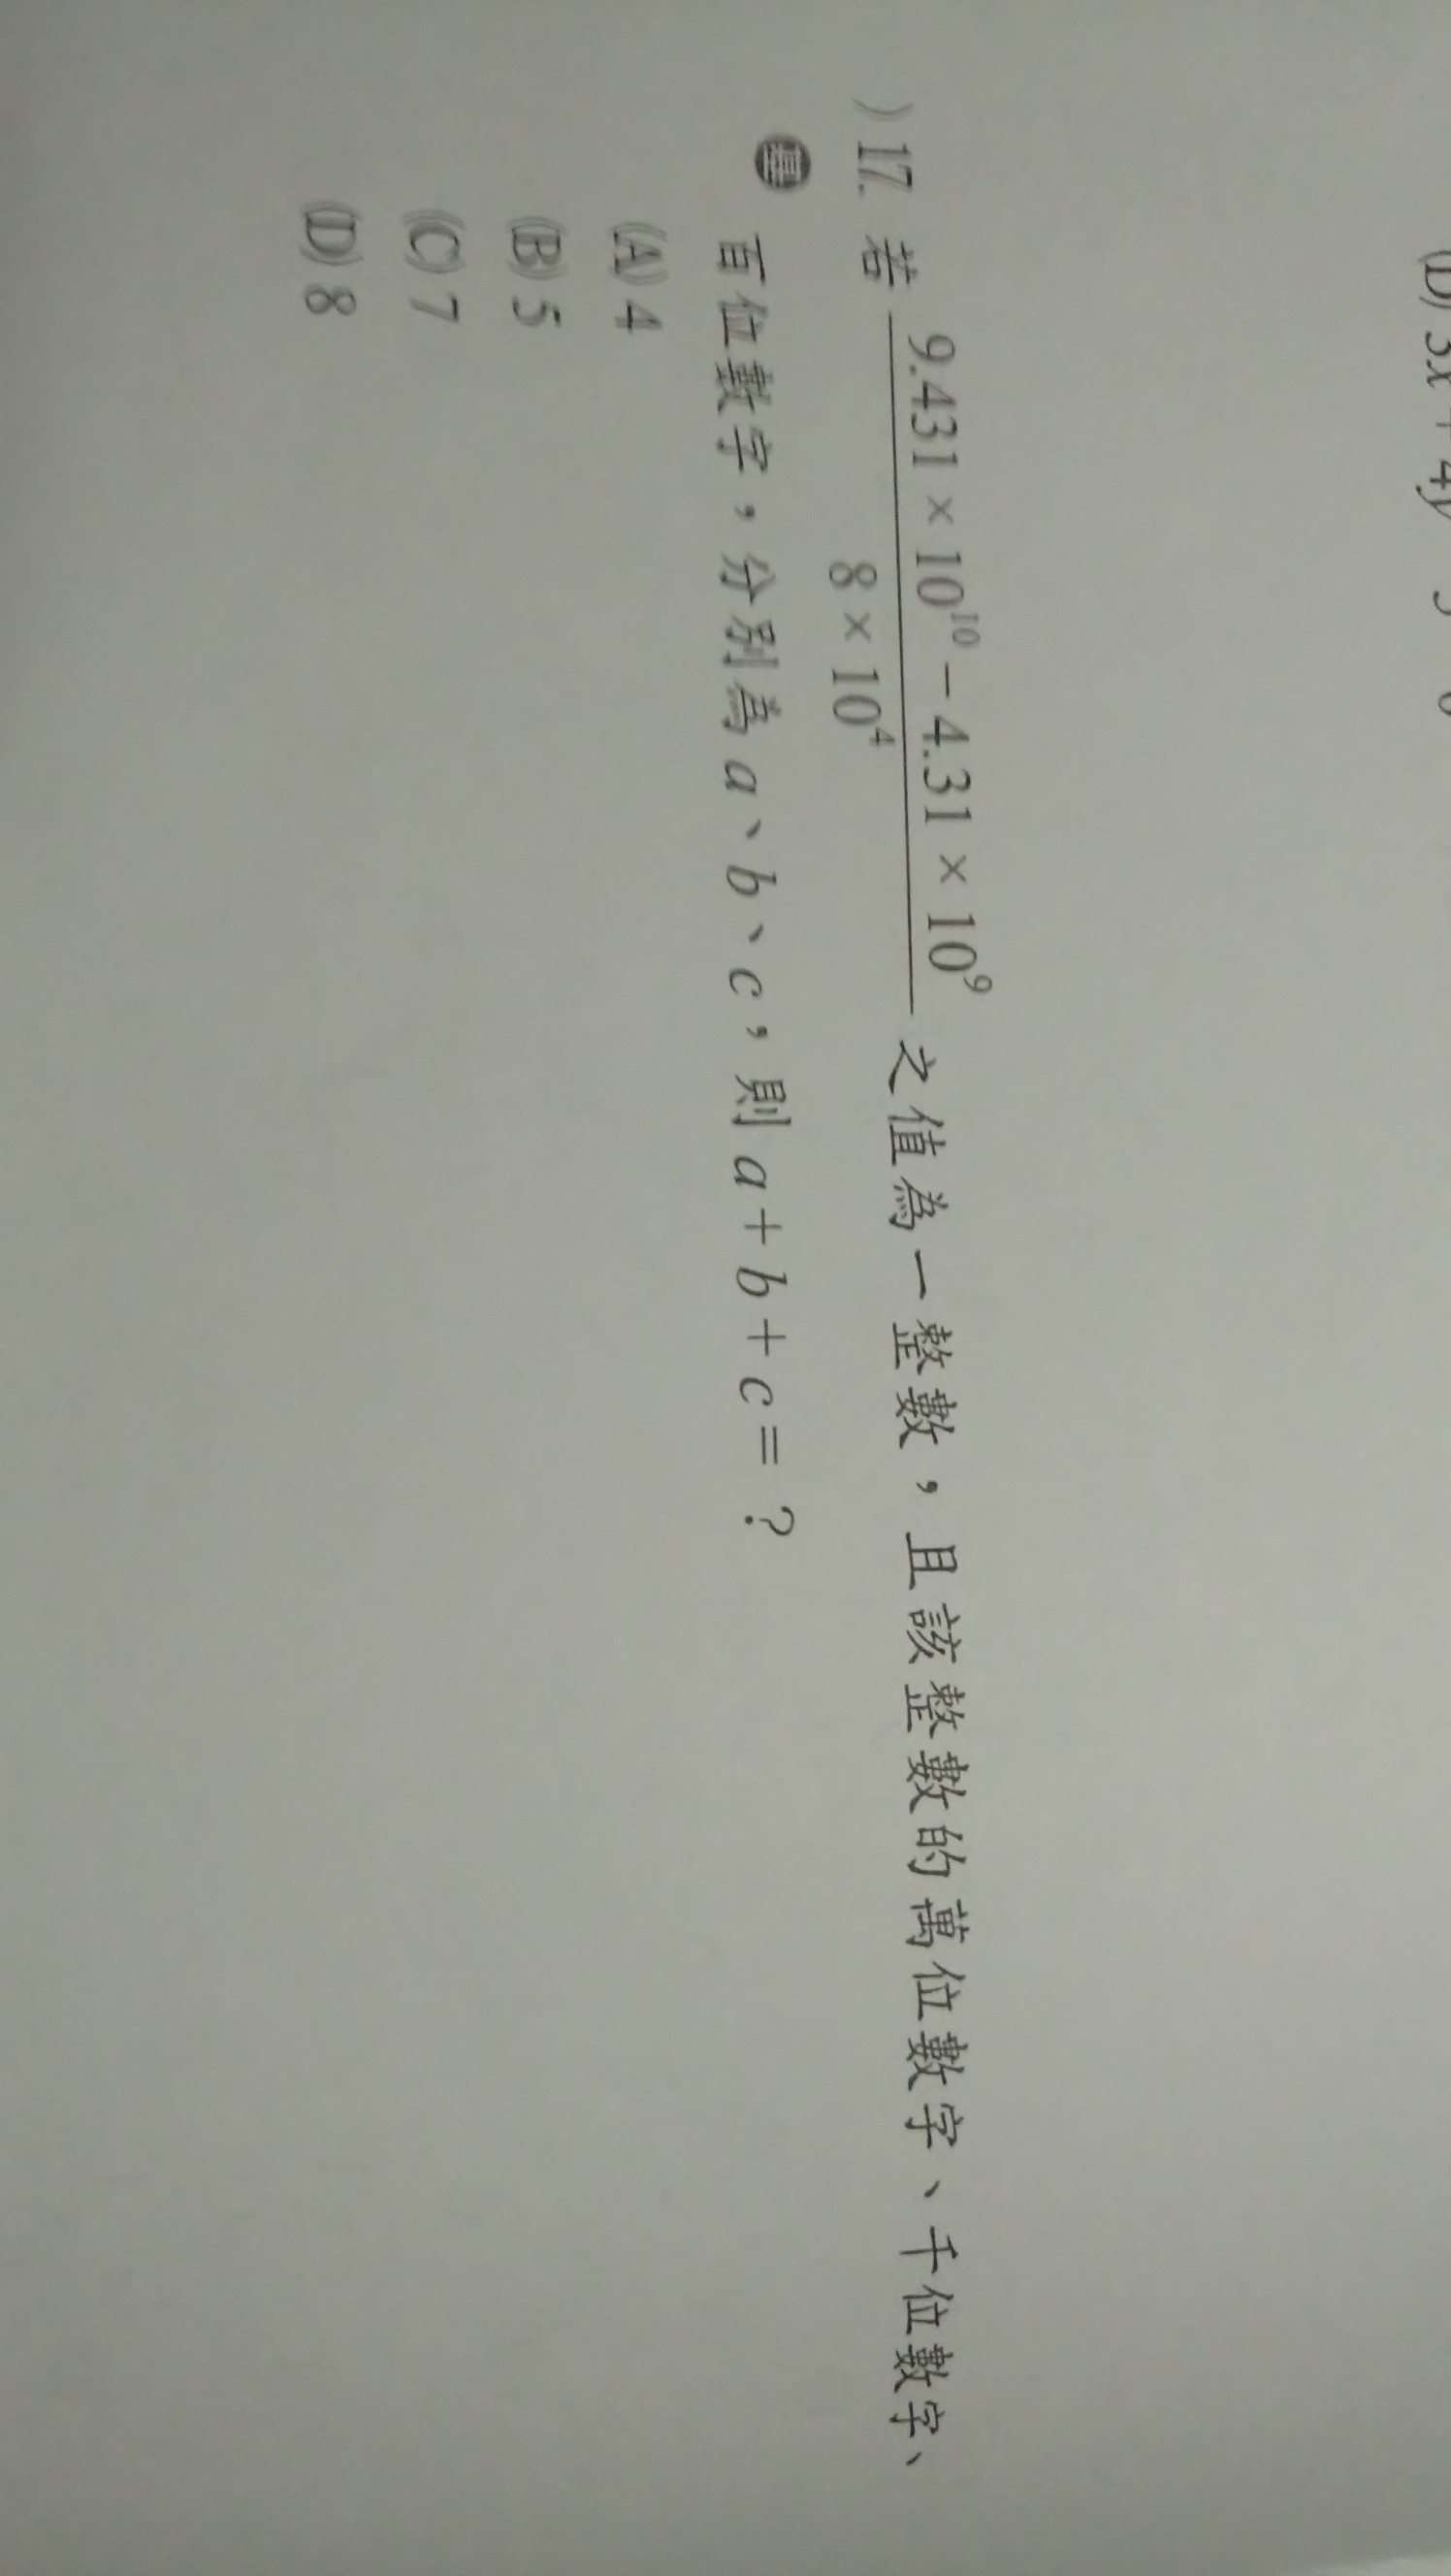 (D) 3x + 4y
)17. 若 \frac{9.431 × 10^{10} − 4.31 × 10^{9}}{8 × 10^{4}} 之值為一整數，且該整數的萬位數字、千位數字、
百位數字，分別為 a、b、c，則 a + b + c = ？
(A) 4
(B) 5
(C) 7
(D) 8